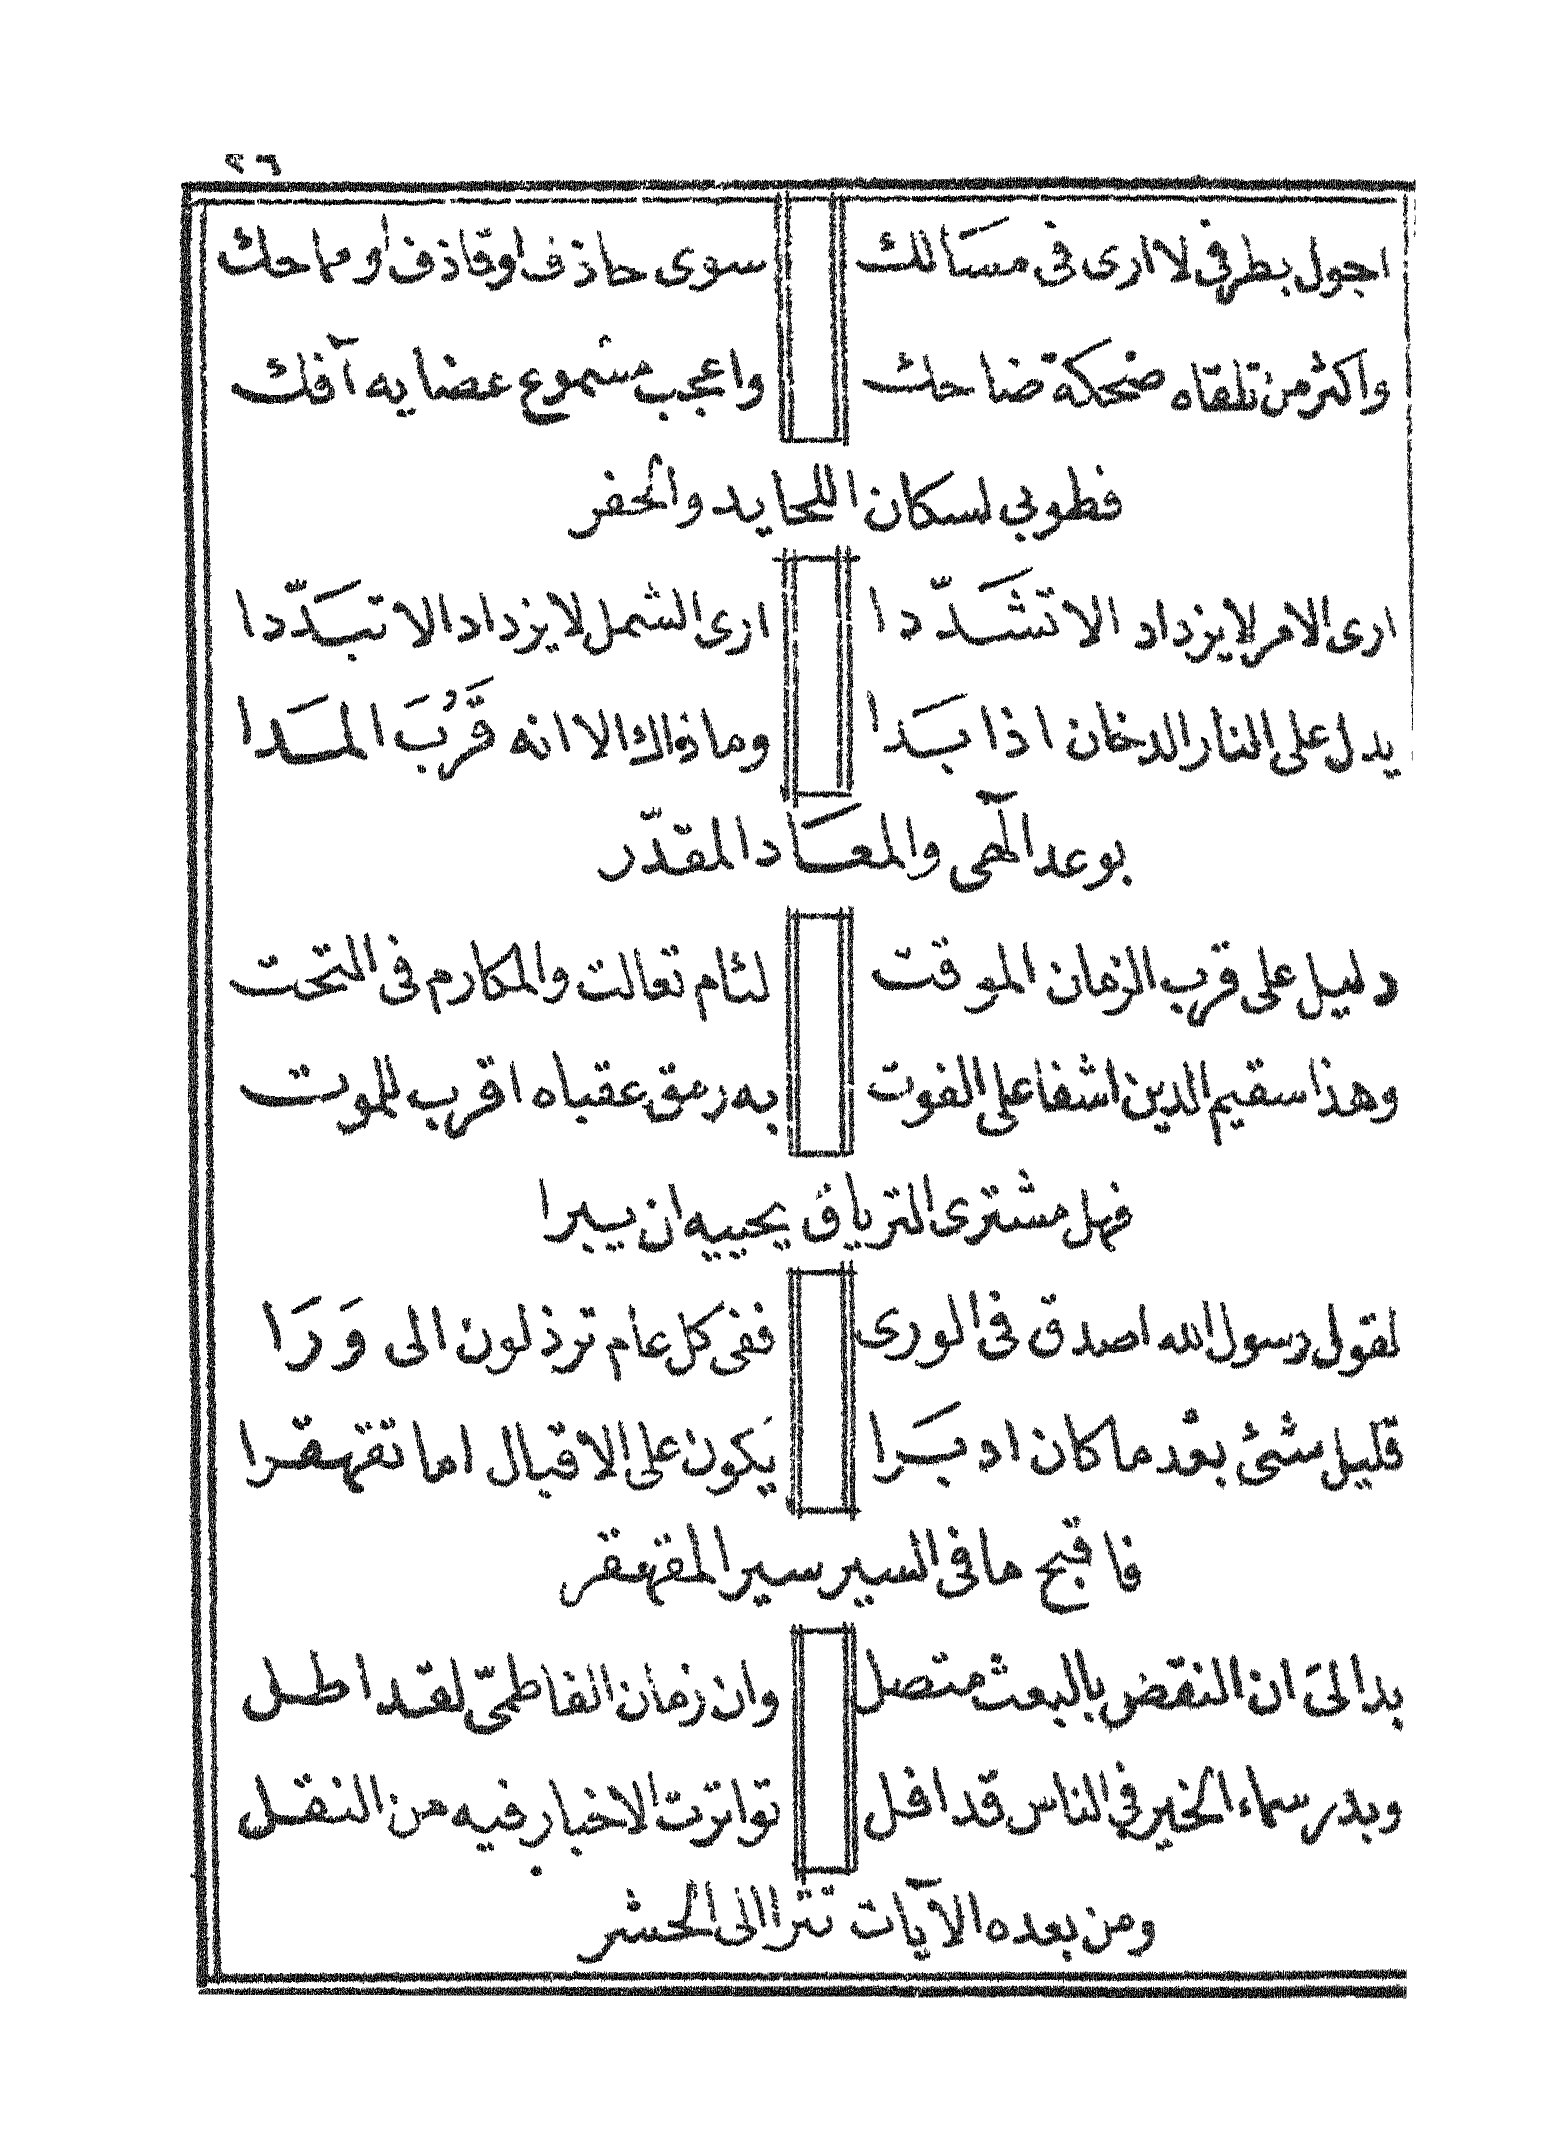 ٢٦
اجول بطرفى لا ارى فى مسَالك سوى حاذف اوقاذف او مماحك
واكثر من تلقاه ضحكة ضاحك واعجب مسموع عضايه آفك
فطوبى لسكان اللحايد والحفر
ارى الامر لا يزداد الا تشَدّدا ارى الشمل لا يزداد الا تبَدّدا
يدل على النار الدخان اذا بَدا وما ذاك الا انه قَرُبَ المَدا
بوعد آلهى والمعَاد المقدّر
دليل على قرب الزمان الموقت لئام تعالت والمكارم فى التحت
وهذا سقيم الدين اشفا على الفوت به رمق عقباه اقرب للموت
فهل مشترى الترياق يحييه ان يبرا
لقول رسول الله اصدق فى الورى ففى كل عام ترذلون الى وَرَا
قليل شئ بعْد ما كان ادبَرا يكون على الاقبال اما تقهقرا
فاقبح ما فى السير سير المقهقر
بدا لىَ ان النقض بالبعث متصل وان زمان الفاطمىّ لقد اطل
وبدر سماء الخير فى الناس قد افل تواترت الاخبار فيه من النقل
ومن بعده الآيات تترا الى الحشر